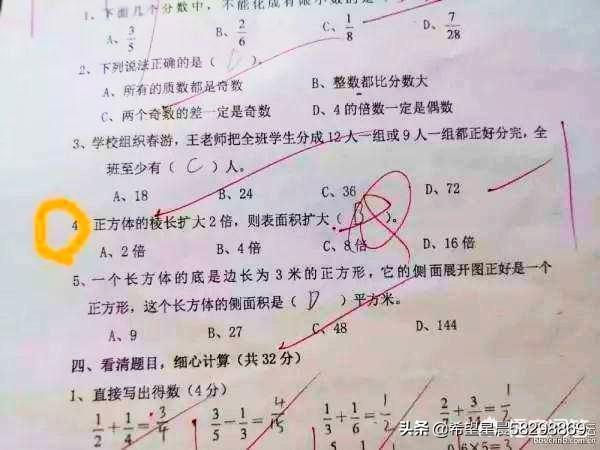 1、下面几个分数中，不能化成有限小数的是
A、3/5 B、2/6 C、1/8 D、7/28
2、下列说法正确的是（ D ）。
A、所有的质数都是奇数 B、整数都比分数大
C、两个奇数的差一定是奇数 D、4的倍数一定是偶数
3、学校组织春游，王老师把全班学生分成12人一组或9人一组都正好分完，全
班至少有（ C ）人。
A、18 B、24 C、36 D、72
4、正方体的棱长扩大2倍，则表面积扩大（ B ）。
A、2倍 B、4倍 C、8倍 D、16倍
5、一个长方体的底是边长为3米的正方形，它的侧面展开图正好是一个
正方形，这个长方体的侧面积是（ D ）平方米。
A、9 B、27 C、48 D、144
四、看清题目，细心计算（共32分）
1、直接写出得数（4分）
1/2+1/4=3/4 3/5-1/3=4/15 1/3+1/6=1/2
0.6×5=3
头条@希望星晨58298869